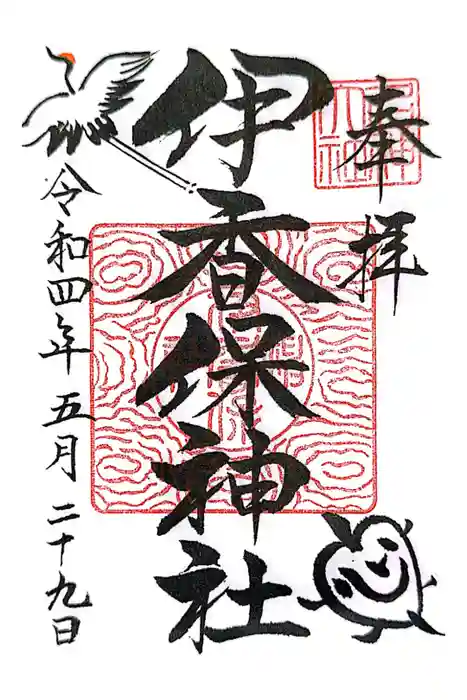 奉拝
伊香保神社
令和四年五月二十九日
心